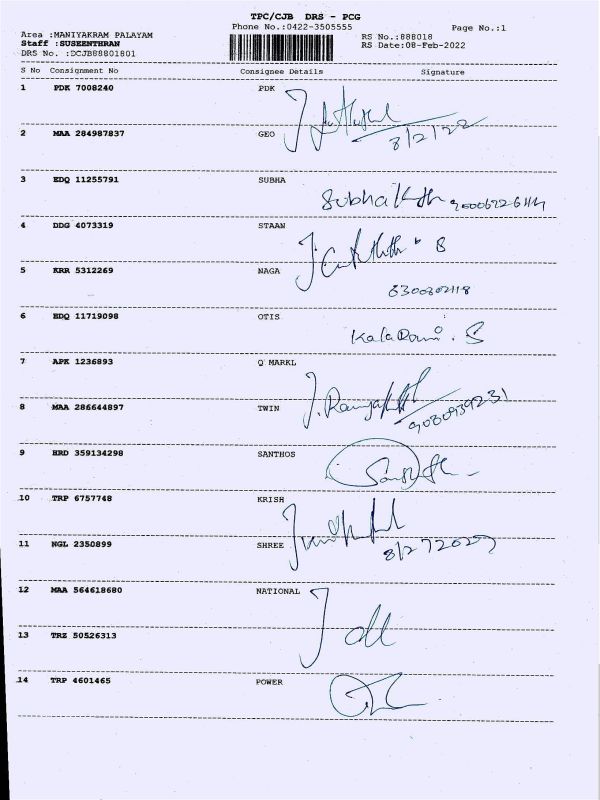 TPC/CJB DRS - PCG
Phone No.:0422-3505555 Page No.:1
Area :MANIYAKRAM PALAYAM RS No.:888018
Staff :SUSEENTHRAN RS Date:08-Feb-2022
DRS No. :DCJB88801801
S No Consignment No Consignee Details Signature
1 PDK 7008240 PDK
8/2/22
2 MAA 284987837 GEO
3 EDQ 11255791 SUBHA
4 DDG 4073319 STAAN
5 KRR 5312269 NAGA
6300802118
6 EDQ 11719098 OTIS
7 APK 1236893 Q MARKL
8 MAA 286644897 TWIN
9 HRD 359134298 SANTHOS
10 TRP 6757748 KRISH
11 NGL 2350899 SHREE
12 MAA 564618680 NATIONAL
13 TRZ 50526313
14 TRP 4601465 POWER